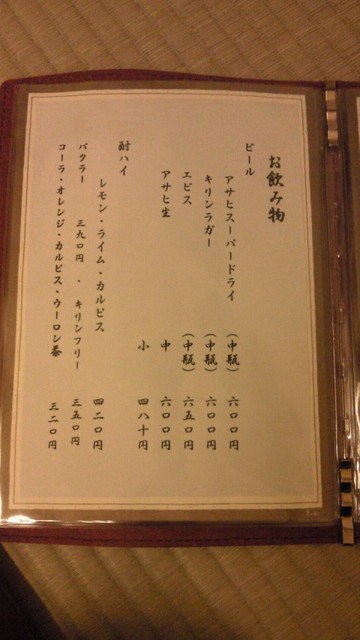 お飲み物
ビール
アサヒスーパードライ (中瓶) 六〇〇円
キリンラガー (中瓶) 六〇〇円
エビス (中瓶) 六五〇円
アサヒ生 中 六〇〇円
小 四八十円
酎ハイ
レモン・ライム・カルピス 四二〇円
バクラー 三九〇円 ・ キリンフリー 三五〇円
コーラ・オレンジ・カルピス・ウーロン茶 三二〇円